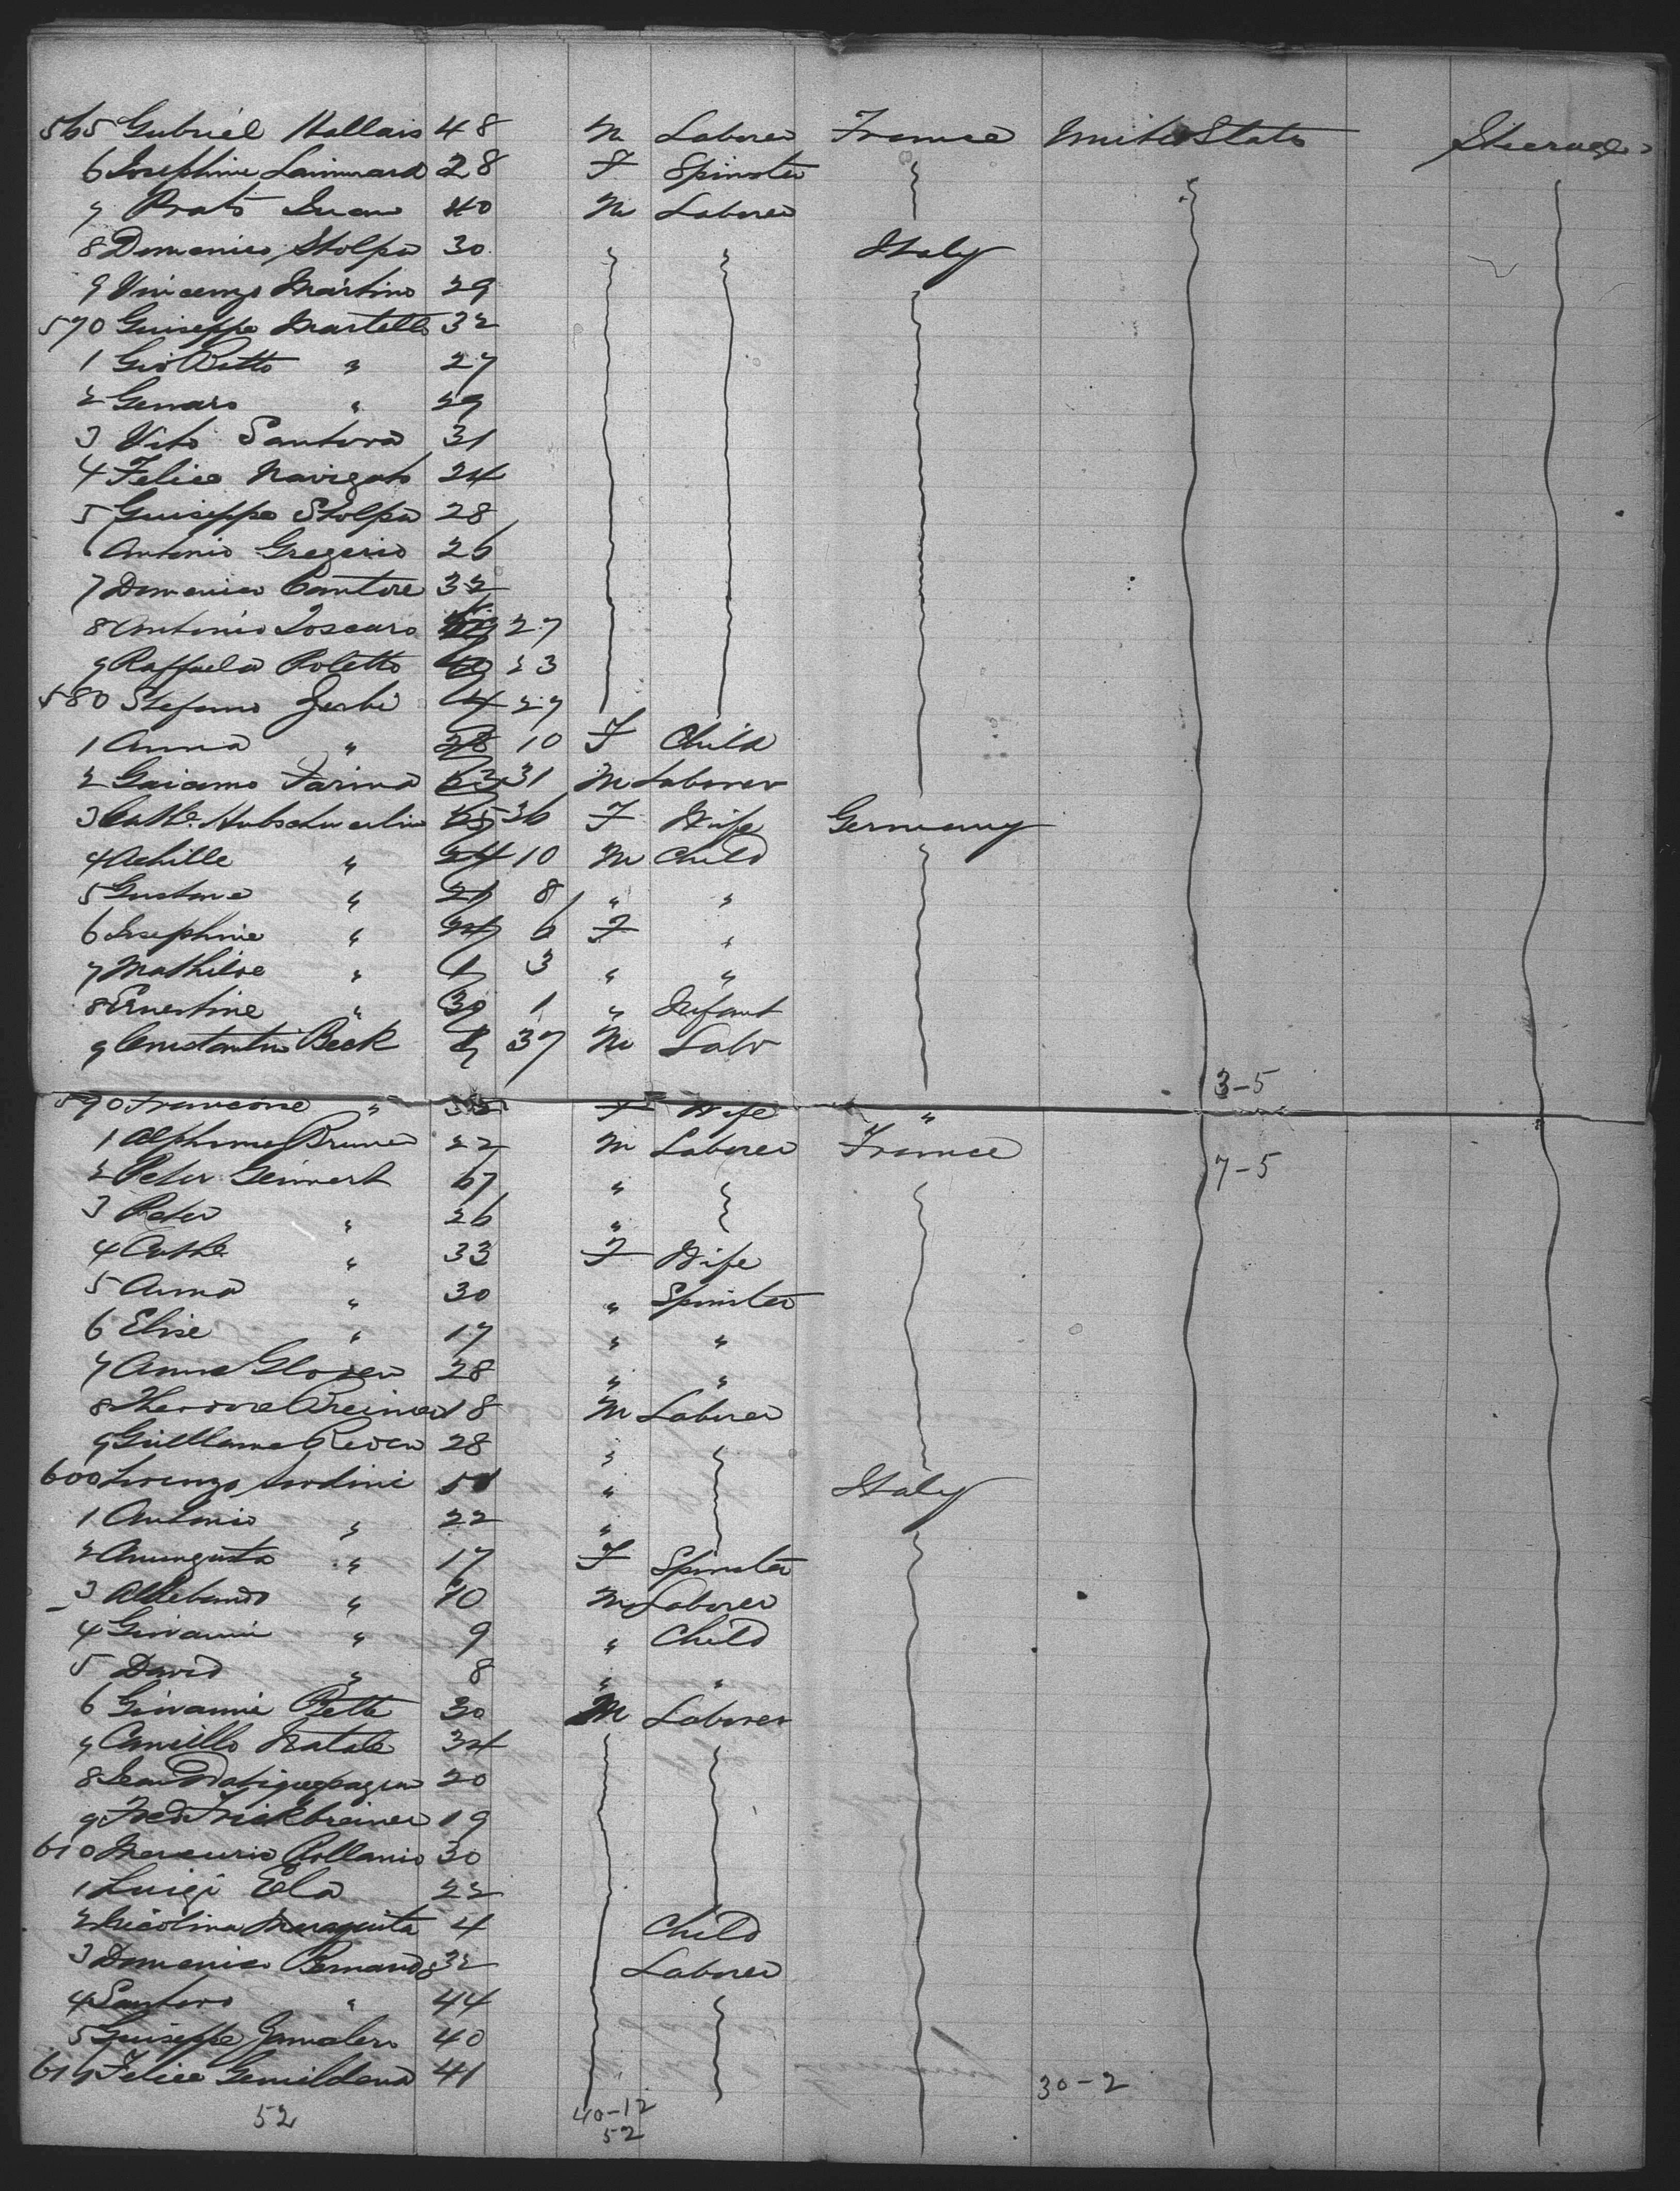 565 Gabriel Hallais 48 M Laborer France United States Steerage
6 Josephine 28 F Spinster
7 Prats Juan 40 M Laborer
8 Domenico Stolpa 30 Italy
9 Vincenzo Martino 29
570 Guiseppe Martello 32
1 Gio Batto " 27
2 Genaro " 29
3 Vito Santora 31
4 Felice Navigato 24
5 Guiseppe Stolpa 28
6 Antonio Gregorio 26
7 Domenico Cantore 32
8 Antonio Toscaro 27
9 Raffaela Poletto 23
580 Stefano Zerbi 4 27
1 Anna " 28 10 F Child
2 Gaiamo Farina 63 31 M Laborer
3 Cathe. 36 F Wife Germany
4 Achille " 24 10 M Child
5 Gustave " 21 8 " "
6 Josephine " 6 F "
7 Mathilde " 3 " "
8 Ernestine " 30 1 " Infant
9 Constantin Beck 37 M Labr
3-5
590 Francoise " F Wife "
1 Alphonse Bruner 22 M Laborer France
7-5
2 Peter Geimert 67 "
3 Peter " 26 "
4 Cathe " 33 F Wife
5 Anna " 30 " Spinster
6 Elise " 17 " "
7 Anna Gloden 28 " "
8 Theodore Breiner 18 M Laborer
9 Guillame Reden 28 "
600 Lorenzo Nodini 51 " Italy
1 Antonio " 22 "
2 Anungiata " 17 F Spinster
3 Aldebando " 10 M Laborer
4 Giovanni " 9 " Child
5 David " 8 " "
6 Giovanni Petto 30 M Laborer
7 Camillo Natale 34
8 Jean 20
9 Fred Frickbreiner 19
610 Mercurio Pollanio 30
1 Luigi Ela 22
2 Nicolina Maraquita 4 Child
3 Domenico Bernardo 32 Laborer
4 Santoro " 44
5 Guiseppe Gamalero 40
616 Felice Gemildena 41
30-2
52 40-12
52